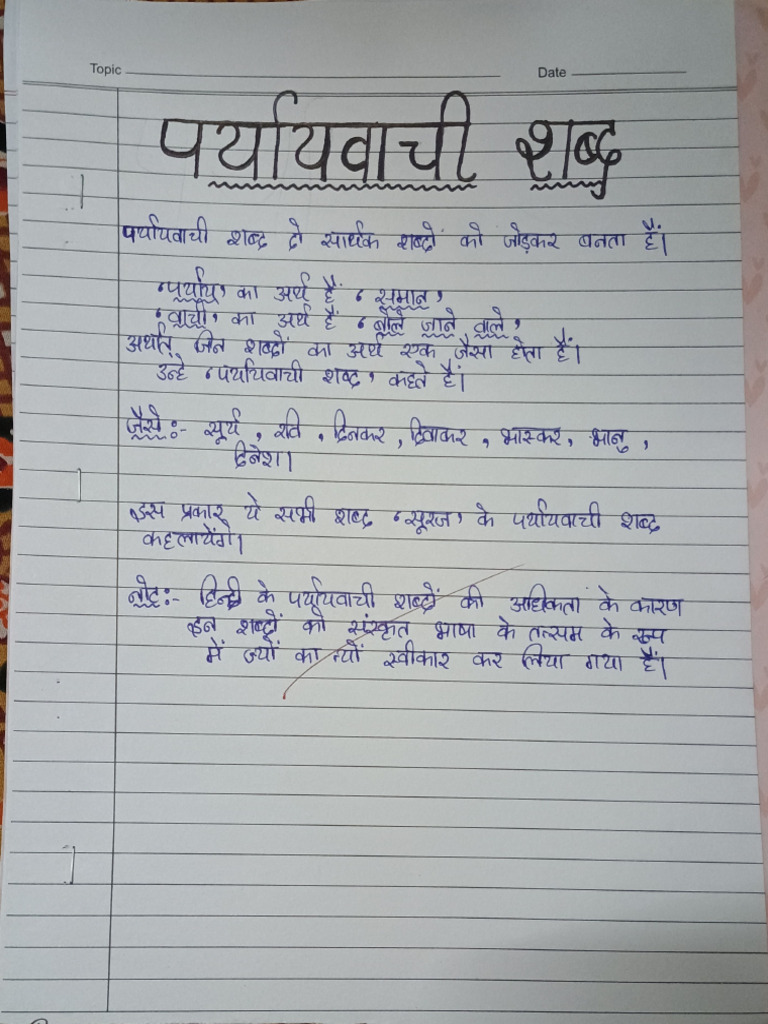 Topic
Date
पर्यायवाची शब्द
पर्यायवाची शब्द दो सार्थक शब्दों को जोड़कर बनता हैं।
'पर्याय' का अर्थ हैं 'समान'
'वाची' का अर्थ हैं 'बोले जाने वाले'
अर्थात् जिन शब्दों का अर्थ एक जैसा होता हैं।
उन्हे 'पर्यायवाची शब्द' कहते हैं।
जैसे:- सूर्य, रवि, दिनकर, दिवाकर, भास्कर, भानु,
दिनेश।
इस प्रकार ये सभी शब्द 'सूरज' के पर्यायवाची शब्द
कहलायेंगे।
नोट:- हिन्दी के पर्यायवाची शब्दों की अधिकता के कारण
इन शब्दों को संस्कृत भाषा के तत्सम के रूप
में ज्यों का त्यों स्वीकार कर लिया गया हैं।